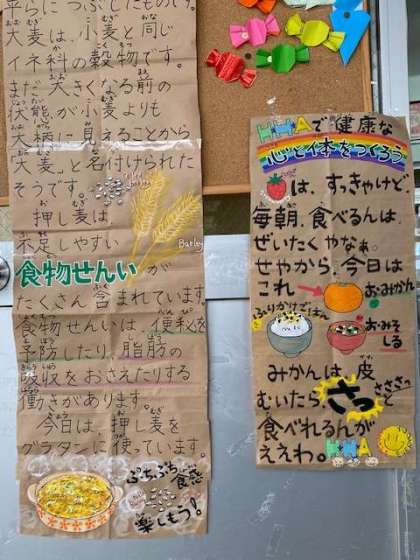 平らにつぶしたものだ。
大麦は、小麦と同じ
イネ科の穀物です。
まだ大きくなる前の
状態が小麦よりも
大柄に見えることから
"大麦"と名付けられた
そうです。
押し麦は、
不足しやすい
食物せんいが
たくさん含まれています。
食物せんいは、便秘を
予防したり、脂肪の
吸収をおさえたりする
働きがあります。
今日は、押し麦を
グラタンに使っています。
Barley
ぷちぷち
食感
楽しもう!
HMAで健康な
心と体をつくろう
は、すっきゃけど、
毎朝、食べるんは、
ぜいたくやなぁ。
せやから、今日は
これ
おみかん
ふりかけごはん
おみそしる
みかんは、皮
むいたら、さっと
ささささっ
食べれるんが
ええわ。HMA